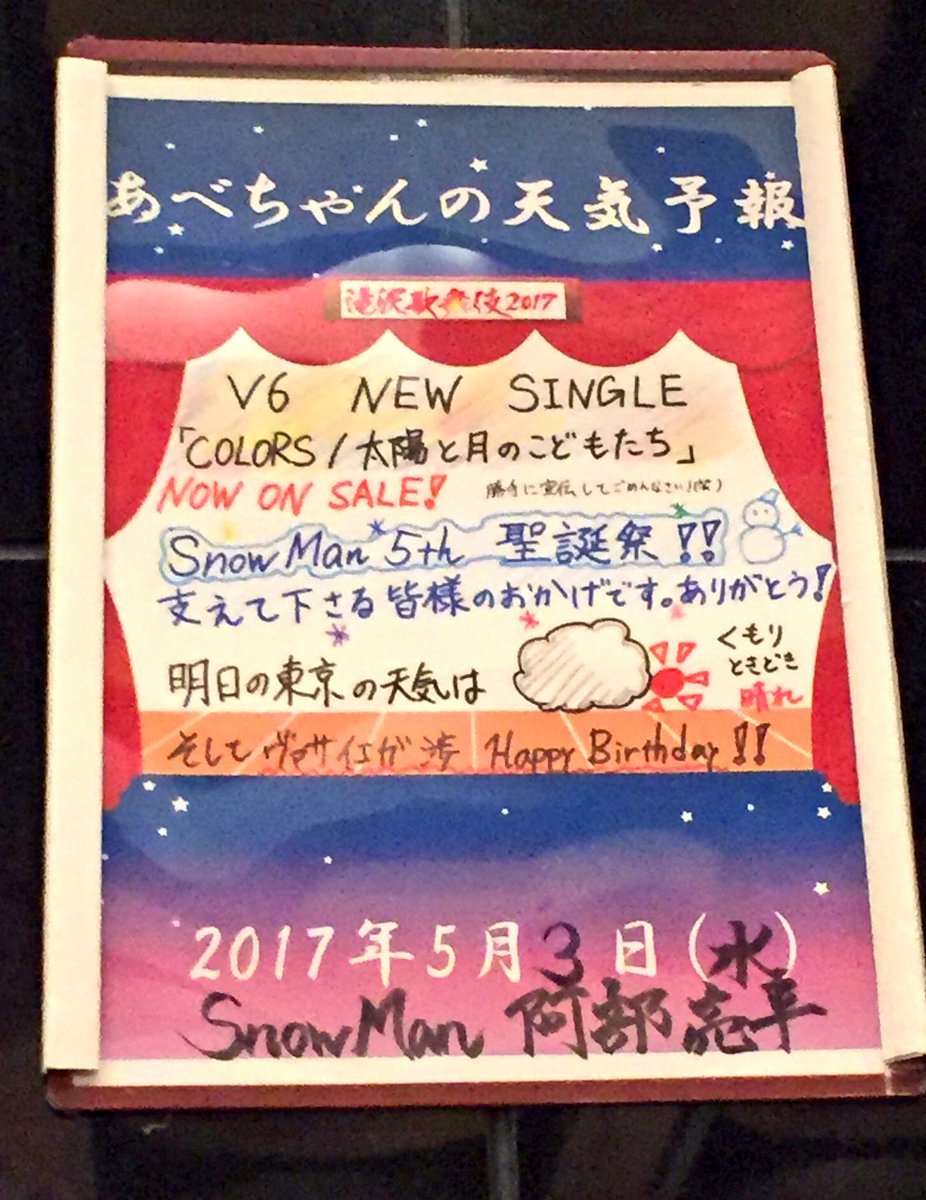 あべちゃんの天気予報
滝沢歌舞伎2017
V6 NEW SINGLE
「COLORS / 太陽と月のこどもたち」
NOW ON SALE! 勝手に宣伝してごめんなさい!(笑)
Snow Man 5th 聖誕祭!!
支えて下さる皆様のおかげです。ありがとう!
明日の東京の天気は
くもり
ときどき
晴れ
そしてヴァサイエガ渉 Happy Birthday!!
2017年5月3日(水)
Snow Man 阿部亮平